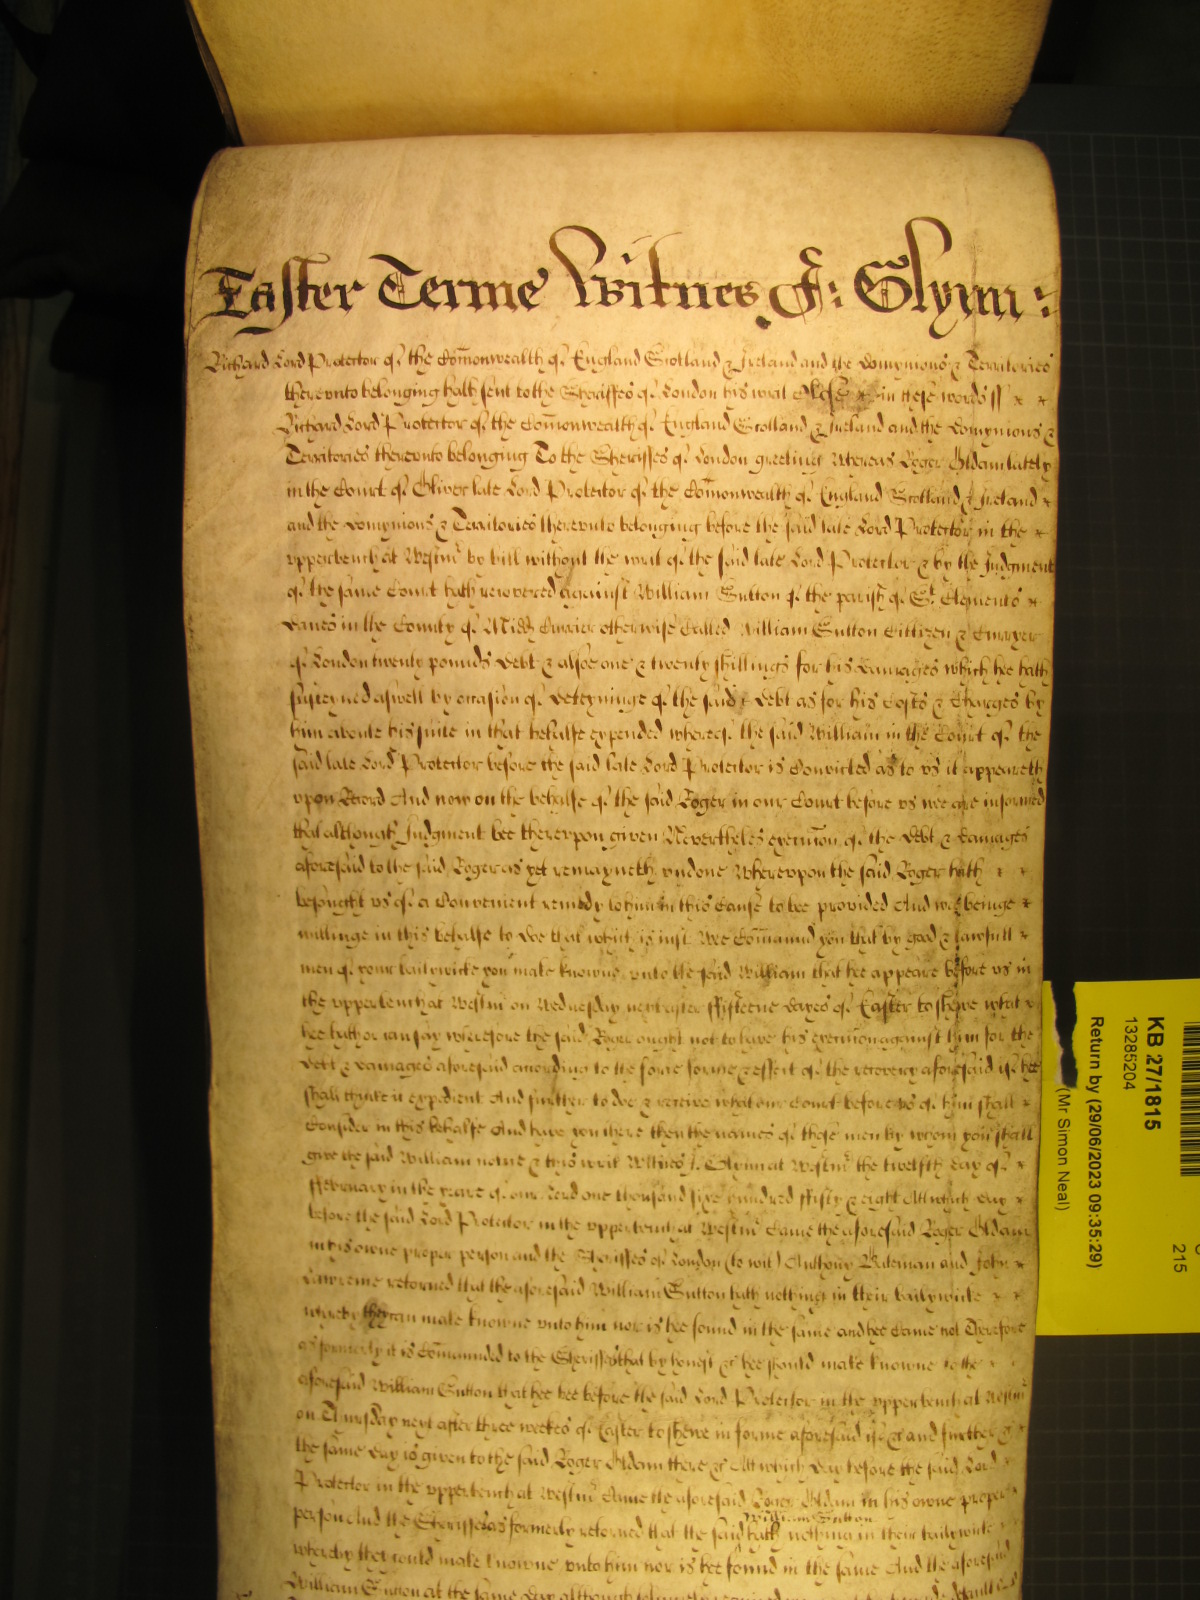 Easter Terme Witnes J: Glynn:
Richard Lord Protector of the Com̄onwealth of England Scotland & Ireland and the Domynions & Territories
therevnto belonging hath sent to the Sheriffes of London his writ Close in these words ss
Richard Lord Protector of the Com̄onwealth of England Scotland & Ireland and the Domynions &
Territories therevnto belonging To the Sheriffes of London greeting Whereas Roger Oldam lately
in the Court of Oliver late Lord Protector of the Com̄onwealth of England Scotland & Ireland
and the Domynions & Territories therevnto belonging before the said late Lord Protector in the
vpperbench at Westmr by bill without the writ of the said late Lord Protector & by the Judgment
of the same Court hath recovered against William Sutton of the parish of St Clements
Danes in the County of Midd Currier otherwise Called William Sutton Cittizen & Curryer
of London twenty pounds debt & alsoe one & twenty shillings for his damages which hee hath
susteyned aswell by occasion of deteyninge of the said debt as for his Costs & Charges by
him aboute his suite in that behalfe expended whereof the said William in the Court of the
said late Lord Protector before the said late Lord Protector is Convicted as to vs it appeareth
vpon Record And now on the behalfe of the said Roger in our Court before vs wee are informed
that although Judgment bee therevpon given Nevertheles execucōn of the debt & damages
aforesaid to the said Roger as yet remayneth vndone Wherevpon the said Roger hath
besought vs of a Convenient remedy to him in this Cause to bee provided And wee beinge
willinge in this behalfe to doe that which is iust Wee Com̄aund you that by good & lawfull
men of your bailywicke you make knowne vnto the said William that hee appeare before vs in
the vpperbench at Westmr on Wednesday next after fifteene dayes of Easter to shewe what
hee hath or can say wherefore the said Roger ought not to have his execucōn against him for the
debt & damages aforesaid according to the force forme & effect of the recovery aforesaid if hee
shall thinke it expedient And further to doe & receive what our Court before vs of him shall
Consider in this behalfe And have you there then the names of those men by whom you shall
give the said William notice & this writ Witnes J: Glynn at Westmr the twelfth day of
ffebruary in the yeare of our Lord one thousand sixe hundred ffifty & eight Att which day
before the said Lord Protector in the vpperbench at Westmr Came the aforesaid Roger Oldam
in his owne proper person and the Sheriffes of London (to wit) Anthony Bateman and John
Lawrence retorned that the aforesaid William Sutton hath nothing in their bailywicke
whereby they can make knowne vnto him nor is hee found in the same and hee Came not Therefore
as formerly it is Com̄aunded to the Sheriffes that by honest &c hee should make knowne to the
aforesaid William Sutton that hee bee before the said Lord Protector in the vpperbench at Westmr
on Thursday next after three weekes of Easter to shewe in forme aforesaid if &c and further &c
the same day is given to the said Roger Oldam there &c Att which day before the said Lord
Protector in the vpperbench at Westmr Came the aforesaid Roger Oldam in his owne proper
William Sutton
person And the Sheriffes as formerly retorned that the said hath nothing in their bailywicke
whereby they could make knowne vnto him nor is hee found in the same And the aforesaid
William Sutton at the same day although solemnly required
KB 27/1815
13285204
Return by (29/06/2023 09:35:29)
(Mr Simon Neal)
215